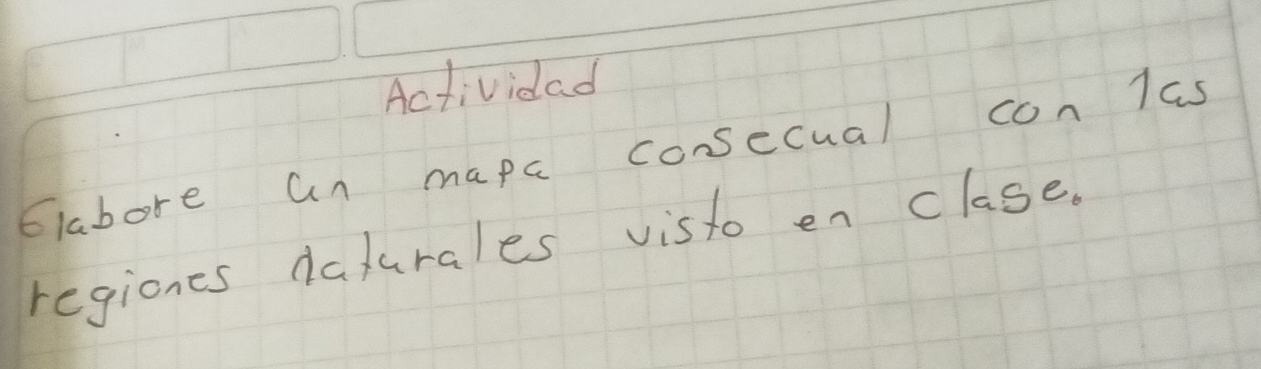 Actividad
Elabore un mapa consecual con las
regiones naturales visto en clase.